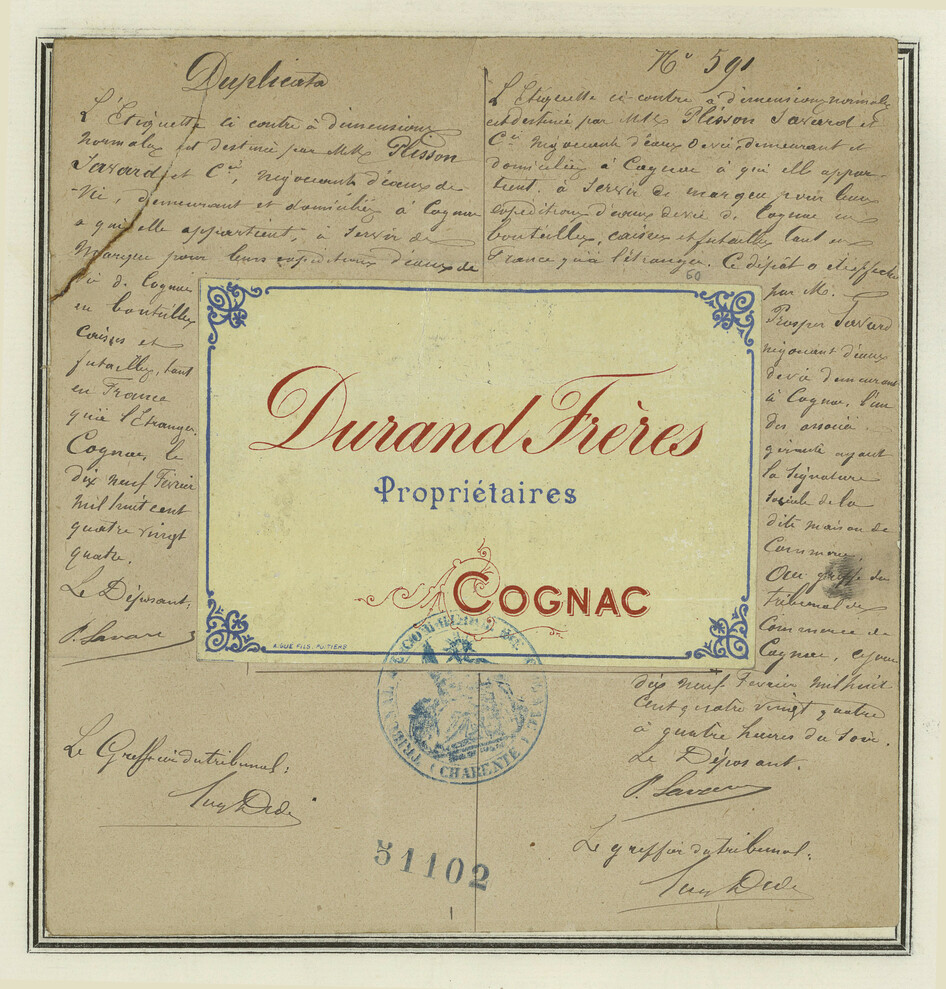 Duplicata
L'Etiquette ci contre à dimensions
normales est destinée par MM. Plisson
Savard et Cie, négociants d'eaux-de-
-Vie, demeurant et domiciliés à Cognac
a qui elle appartient, à servir de
Marque pour leurs expéditions d'eaux de
vie de Cognac
en bouteilles
caisses et
futailles, tant
en France
qu'à l'Etranger.
Cognac, le
dix neuf Février
mil huit cent
quatre vingt
quatre.
Le Déposant,
P. Savard
Le Greffier du tribunal:
No 591
L'Etiquette ci-contre à dimensions normales
est destinée par MM. Plisson Savard et
Cie Négociants d'eaux de vie, demeurant et
domiciliés à Cognac à qui elle appar-
tient. à servir de marque pour leurs
expéditions d'eaux de vie de Cognac en
bouteilles, caisses et futailles tant en
France qu'à l'étranger. Ce dépôt a été effectué
60
par M.
Prosper Savard
négociant d'eaux
de vie demeurant
à Cognac, l'un
des associés
gérants ayant
la signature
sociale de la
dite maison de
Commerce,
Au greffe du
tribunal de
Commerce de
Cognac, ce jour
dix neuf Fevrier mil huit
cent quatre vingt quatre
à quatre heures du soir.
Le Déposant.
P. Savard
Le greffier du tribunal:
Durand Frères
Propriétaires
COGNAC
TRIBUNAL DE COMMERCE DE COGNAC
(CHARENTE)
51102